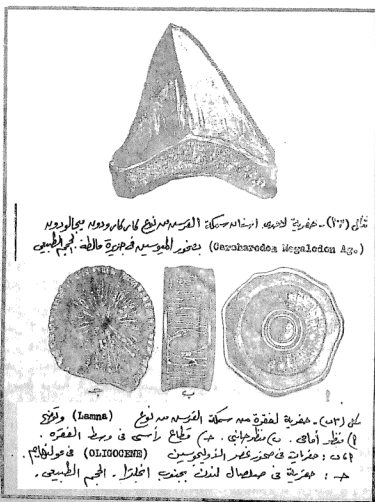 شكل (٣٢) - حفرية لاحدى اسنان سمكة القرش من نوع كاركارودون ميجالودون
(Carcharodon Megalodon Ag.) بصخور الميوسين فى جزيرة مالطة. الحجم الطبيعى
ج ب أ
شكل (٣٣) - حفرية لفقرة من سمكة القرش من نوع (Lamna)
أ) منظر أمامى . ب) منظر جانبى . ج) قطاع رأسى فى وسط الفقرة .
أ، ب : حفريات فى صخور عصر الأوليجوسين (OLIGOCENE) فى
ج : حفرية فى صلصال لندن بجنوب انجلترا . الحجم الطبيعى .